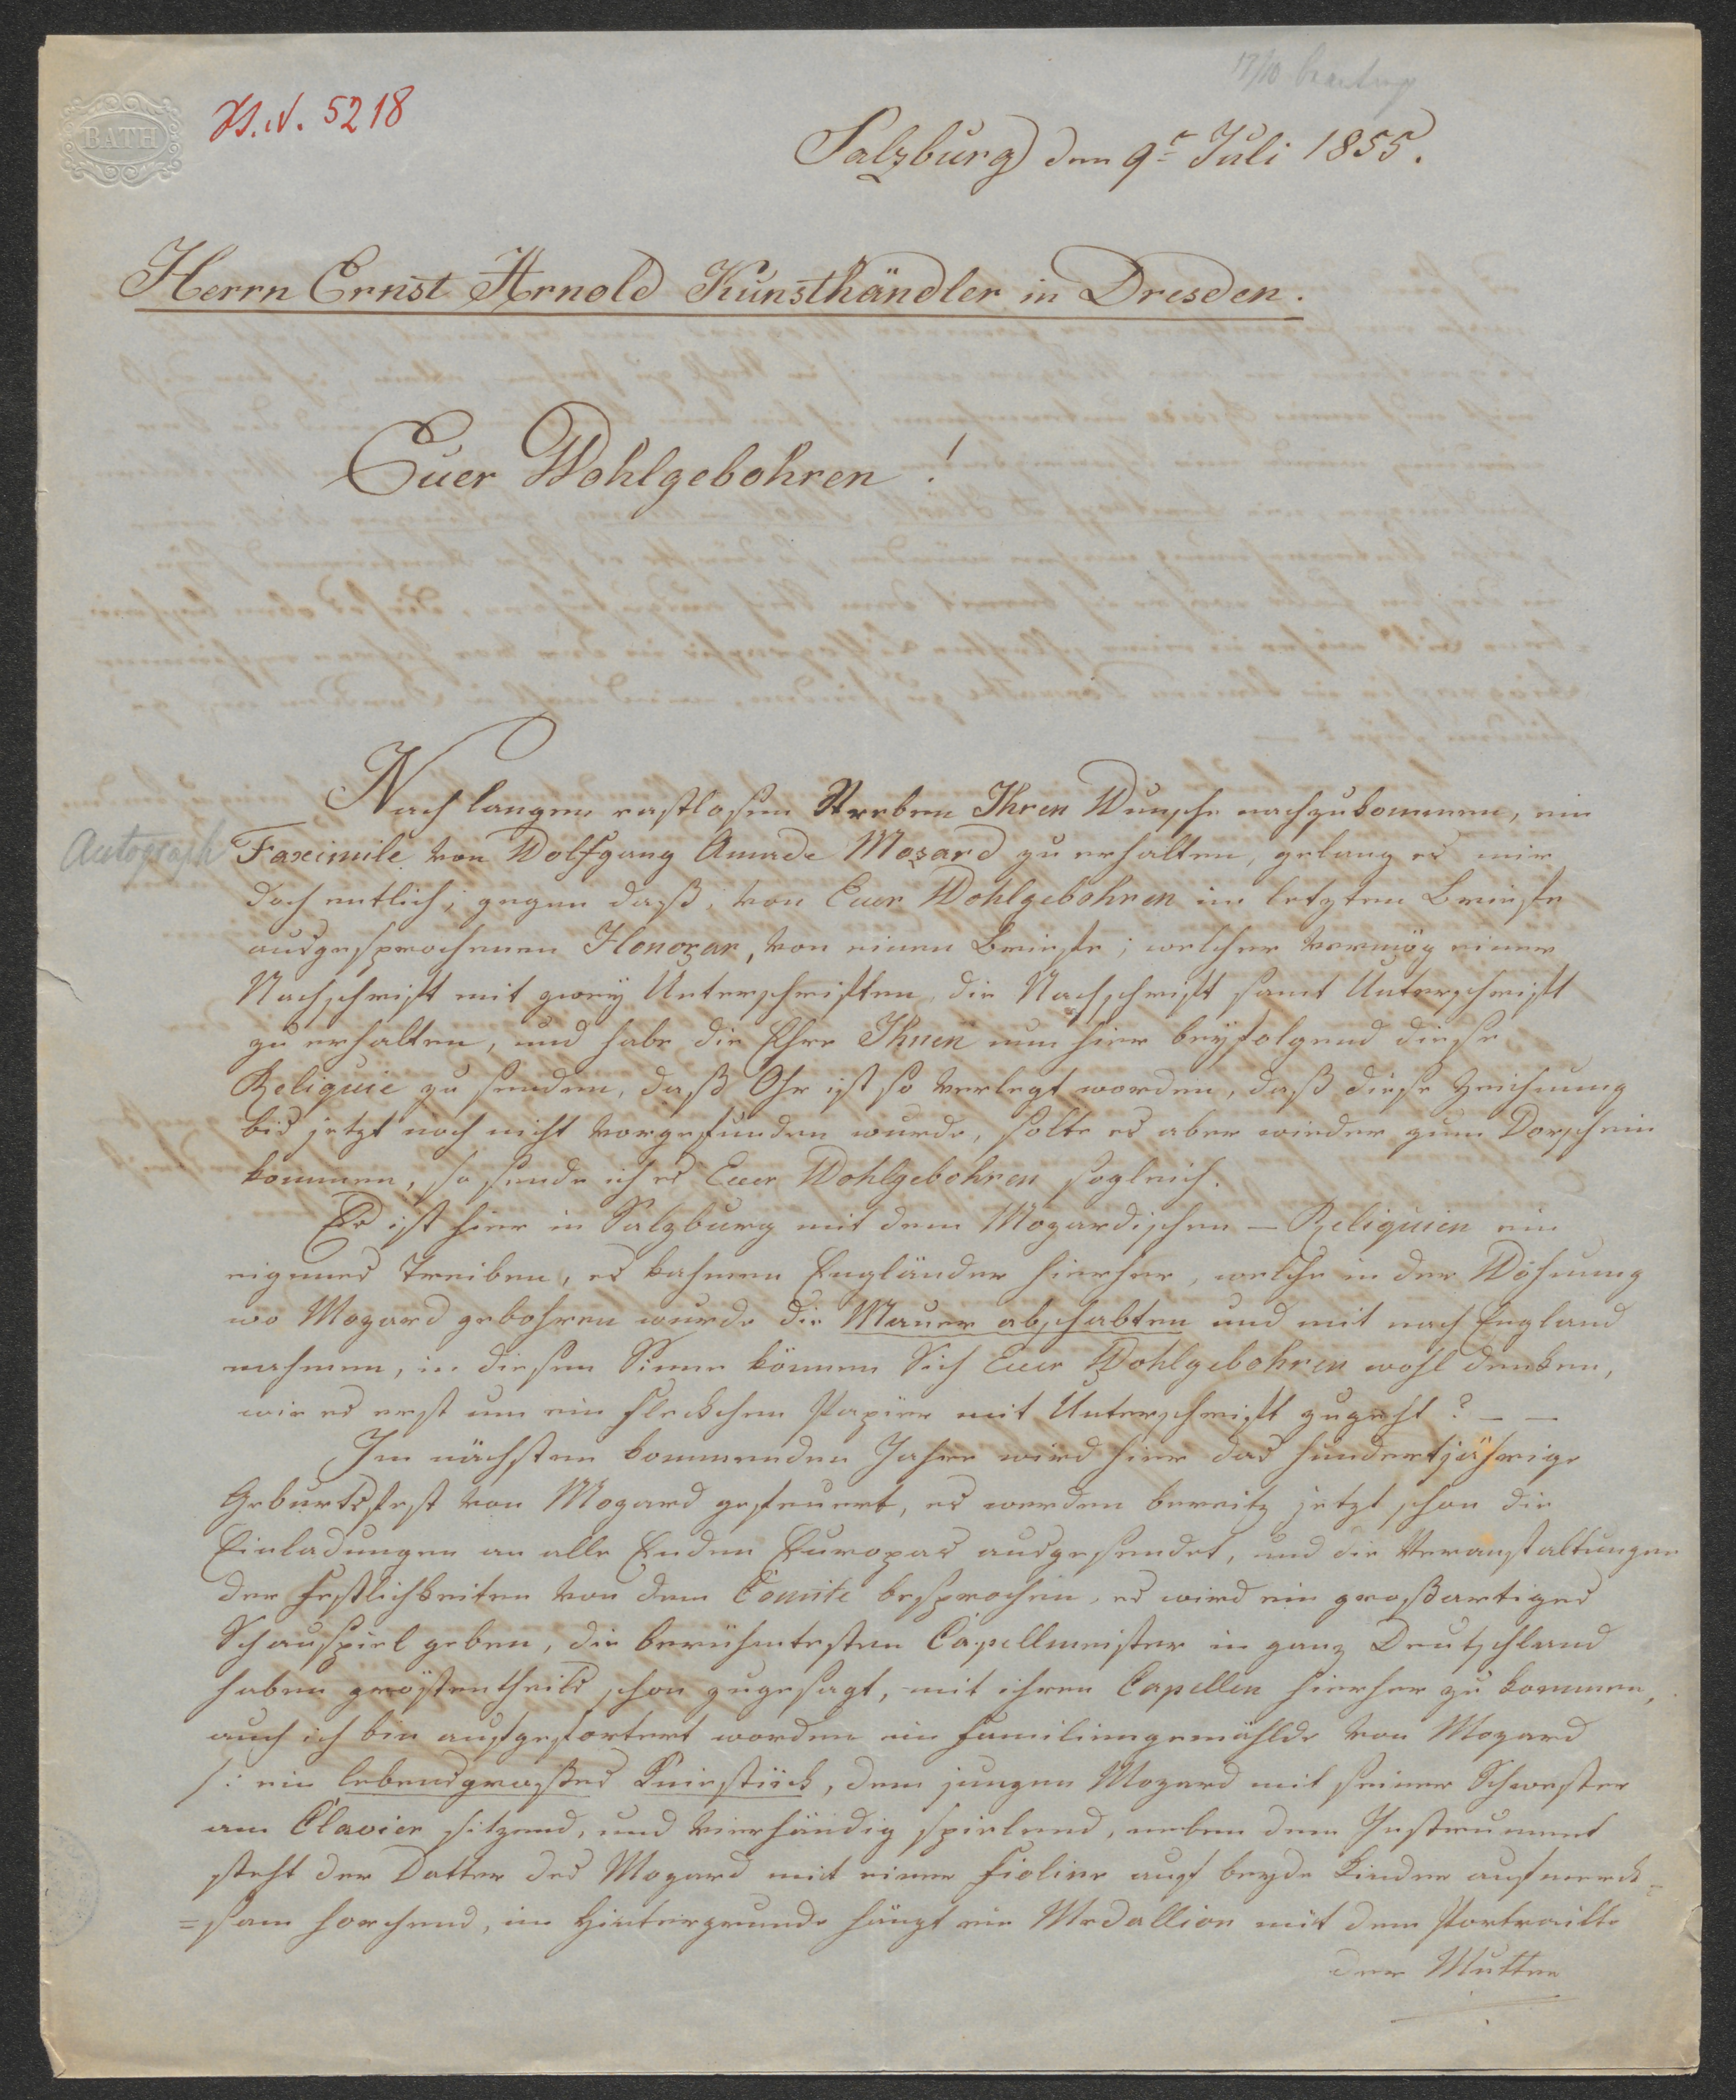 17/10 beantw
BATH
Hs. N. 5218
Salzburg den 9t Juli 1855.
Herrn Ernst Arnold Kunsthändler in Dresden.
Euer Wohlgebohren!
Nach langen rastlosen Streben Ihren Wunsche nachzukommen, ein
Autograph
Faximile von Wolfgang Amade Mozard zu erhalten, gelang es mir
doch entlich, gegen daß, von Euer Wohlgebohren im letzten Briefe
ausgesprochenen Honorar, von einen Briefe, welcher vermög einer
Nachschrift mit zwey Unterschriften, die Nachschrift samt Unterschrift
zu erhalten, und habe die Ehre Ihnen nun hier beyfolgend diese
Reliquie zu senden, daß Ohr ist so verlegt worden, daß diese Zeichnung
bis jetzt noch nicht vorgefunden wurde, solte es aber wieder zum Vorschein
kommen, so sende ich es Euer Wohlgebohren sogleich.
Es ist hier in Salzburg mit dem Mozardischen – Reliquien ein
eigenes Treiben, es kahmen Engländer hierher, welche in der Wohnung
wo Mozard gebohren wurde die Mauer abschabten und mit nach England
nahmen, in diesen Sinne können Sich Euer Wohlgebohren wohl denken,
wie es erst um ein fleckchen Papier mit Unterschrift zugeht? – –
Im nächsten kommenden Jahre wird hier das hundertjährige
Geburtsfest von Mozard gefeuert, es werden bereitz jetzt schon die
Einladungen an alle Enden Europas ausgesendet, und die Veranstaltungen
der Festlichkeiten von dem Comite besprochen, es wird ein großartiges
Schauspiel geben, die berühmtesten Capellmeister in ganz Deutschland
haben gröstentheils schon zugesagt, mit ihren Capellen hierher zu kommen,
auch ich bin aufgefortert worden ein Familiengemählde von Mozard
/: ein lebensgroßes Kniestück, dem jungen Mozard mit seiner Schwester
am Clavier sitzend, und vierhändig spielend, neben dem Instrument
steht der Vatter des Mozard mit einer Fioline auf beyde Kinder aufmerk=
=sam horchend, im Hintergrunde hängt ein Medallion mit dem Portraitte
der Mutter